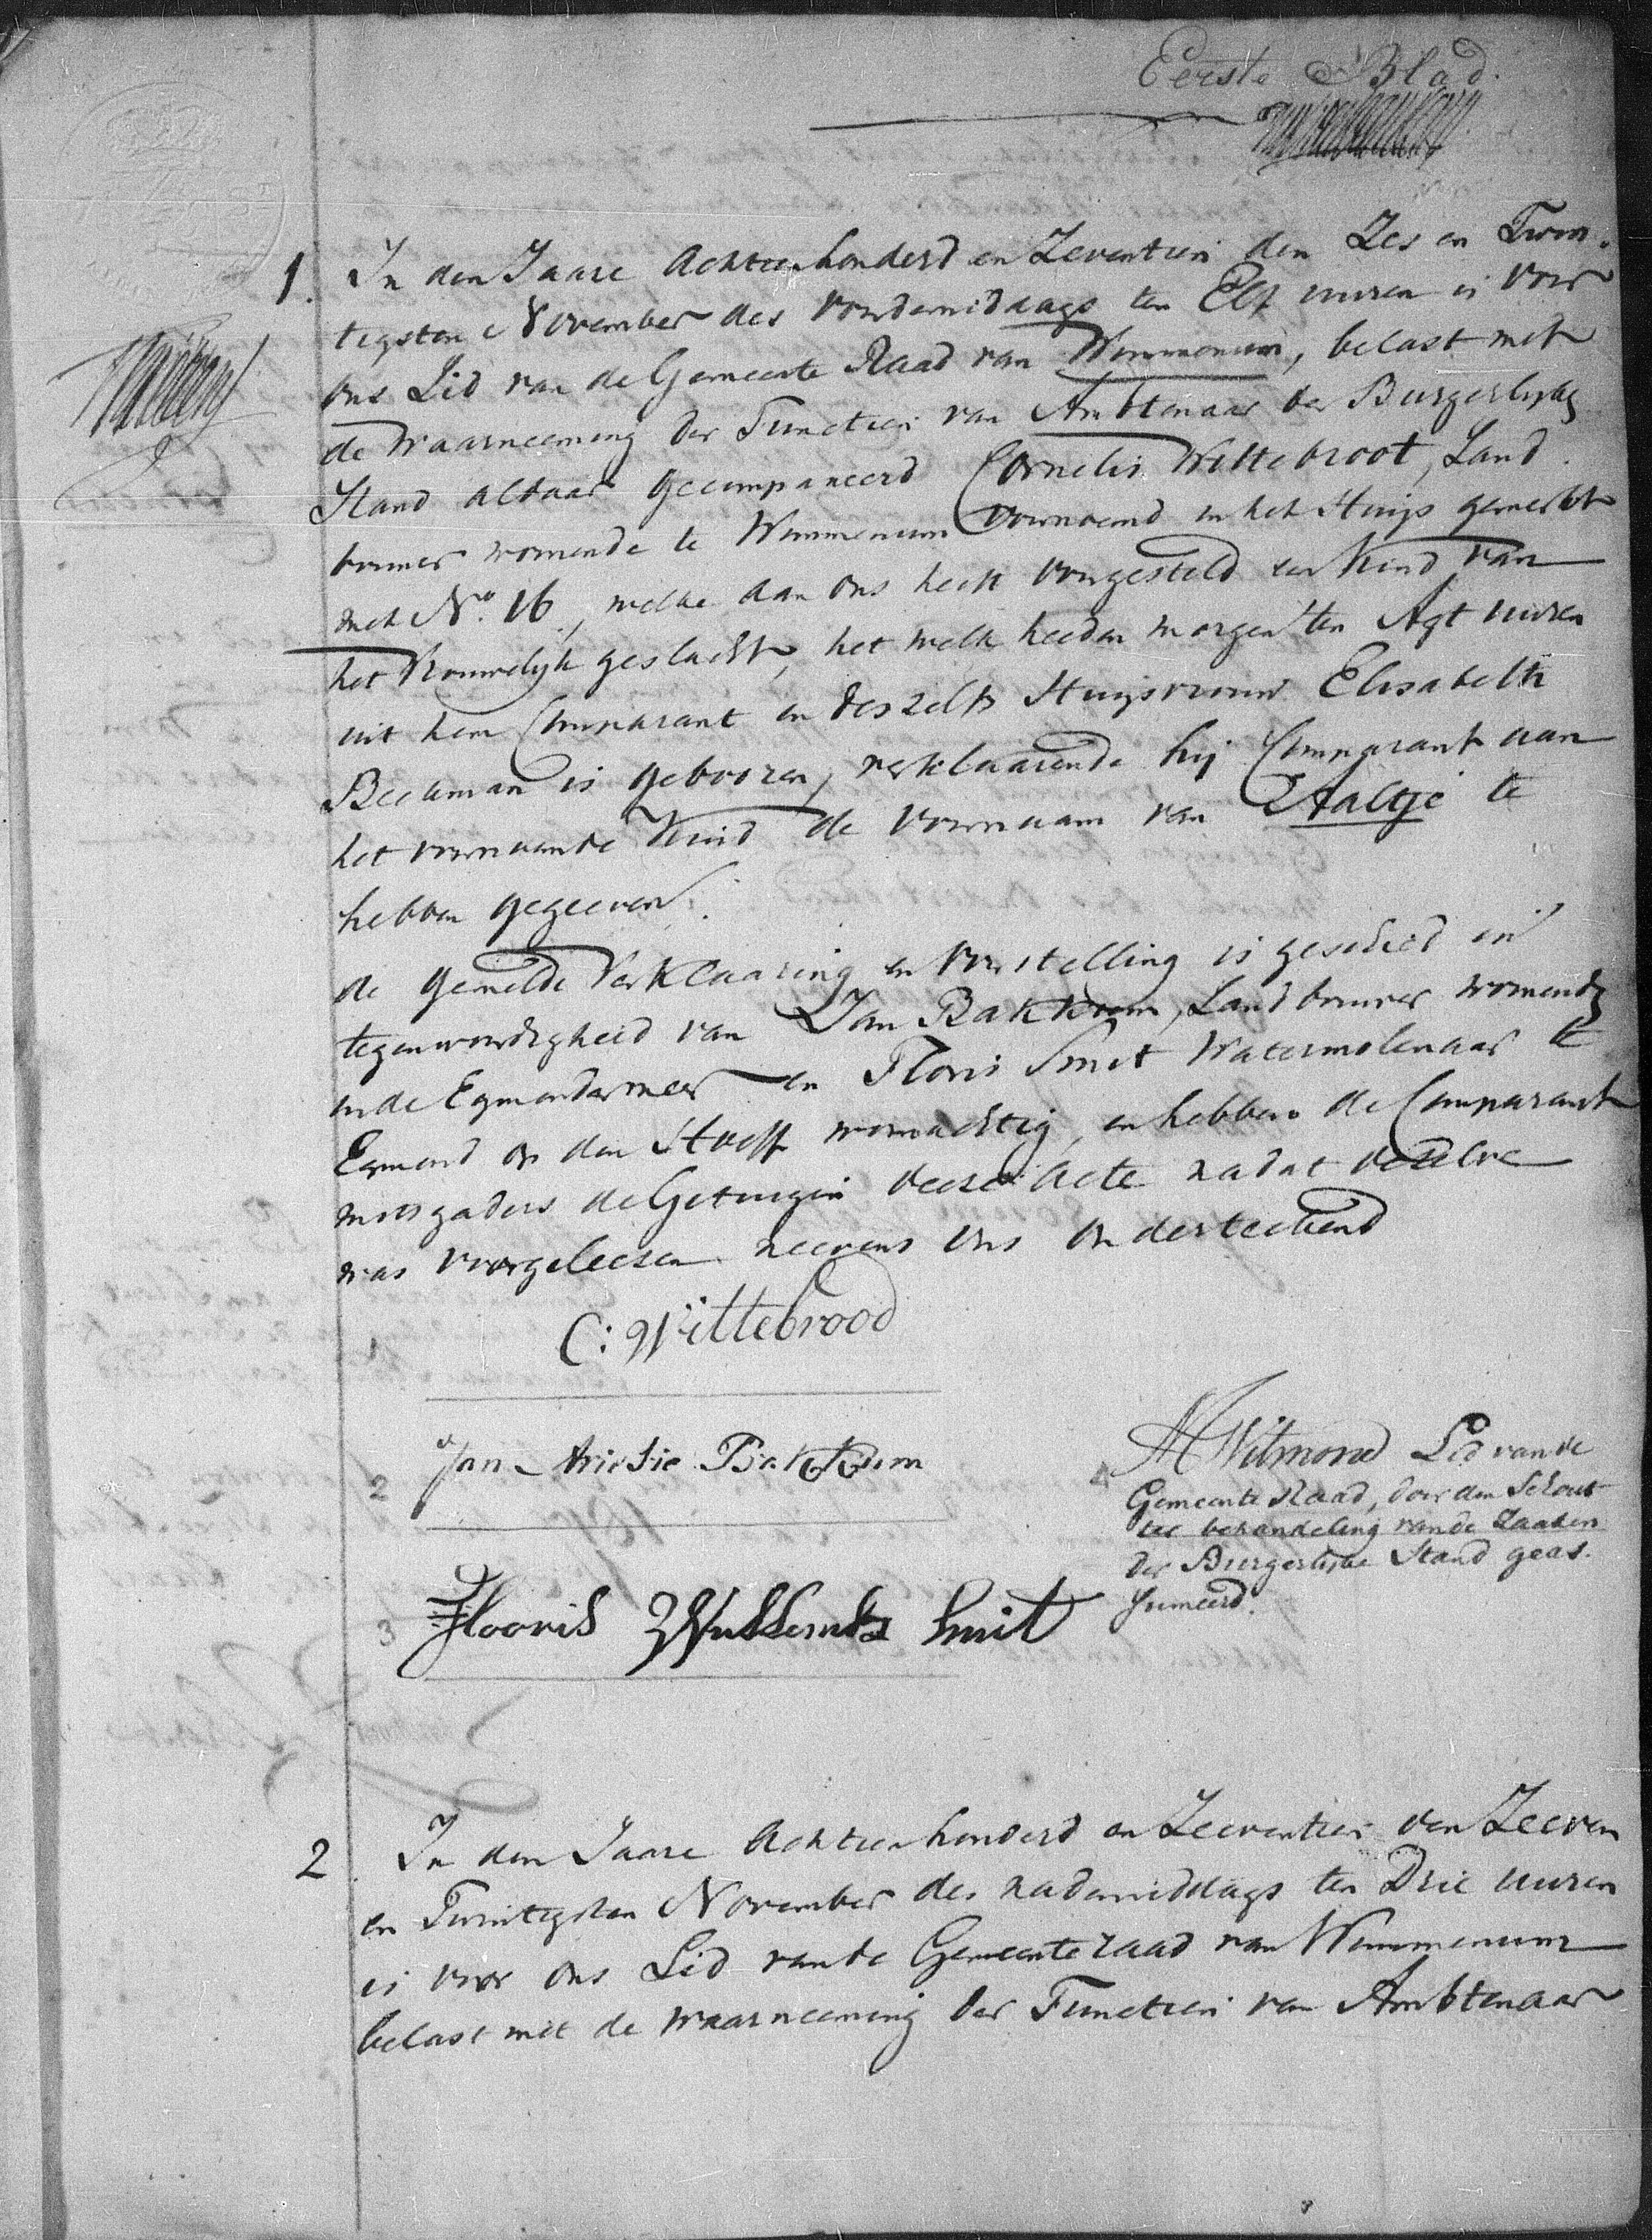 Eerste Blad.
1. In den Jaare Achttienhonderd en Zeventien den Zes en Twin-
tigsten November des voordemiddaags ten Elf uuren is voor
ons Lid van de Gemeente Raad van Wimmenum, belast met
de Waarneeming der Functien van Ambtenaar der Burgerlyke
Stand aldaar gecompareerd Cornelis Wittebroot, Land
bouwer woonende te Wimmenum voornoemd in het Huijs gemerkt
met No. 16, welke aan ons heeft voorgesteld een Kind van
het Vrouwelyk geslacht, het welk heeden morgen ten Agt uuren
uit hem Comparant en deszelfs Huijsvrouw Elisabeth
Beekman is gebooren, verklaarende hij Comparant aan
het voornaamde Kind de voornaam van Aaltje te
hebben gegeeven.
de gemelde Verklaaring en voorstelling is geschied in
tegenwoordigheid van Jan Bakkum, Landbouwer woonende
in de Egmondermeer en Floris Smit Watermolenaar te
Egmond op den Hoeff woonachtig, en hebben de Comparant
mitsgaders de Getuigen deese Acte nadat dezelve
was voorgeleesen neevens ons onderteekend
C: Wittebrood
2 Jan Ariesie Bakkum
4 M Wilmond Lid van de
Gemeente Raad, door den Schout
ter behandeling van de Zaaken
der Burgerlyke Stand geas-
sumeerd.
3 Flooris Smit
2 In den Jaare Achttienhonderd en Zeeventien den Zeeven
en Twintigsten November des nademiddags ten Drie uuren
is voor ons Lid van de Gemeente raad van Wimmenum
belast met de waarneeming der Functien van Ambtenaar